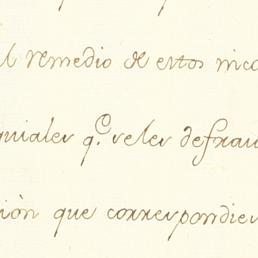 l remedio de estos inco
quiales q.e se les defrau
ción que correspondie